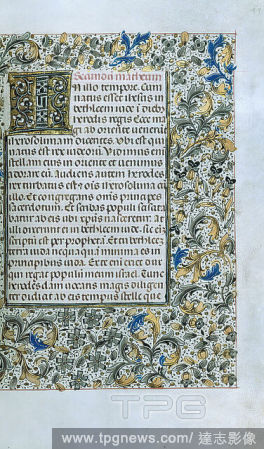 Secundum matheum
N illo tempore. Cum
natus esset ihesus in
bethleem iude i diebꝫ
herodis regis. Ecce ma
gi ab oriente venerūt
iherosolimam dicentes. Vbi est qui
natus est rex iudeorū. Vidimus eni
stellam eius in oriente et venimus
adorare eū. Audiens autem herodes
rex turbatus est et oīs iherosolima cū
illo. Et congregans omnes principes
sacerdotum. Et scribas populi scisci
tabatur ab eis ubi xpūs nasceretur. At
illi dixerunt ei in bethleem iude. sic ei
scriptū est per prophetā. Et tu bethleez
terra iuda nequaquā minima es in
principibus iuda. Ex te eni exiet dux
qui regat populū meum israel. Tunc
herodes clam vocatis magis diligen
ter didicit ab eis tempus stelle que
TPG
www.tpgnews.com / 達志影像